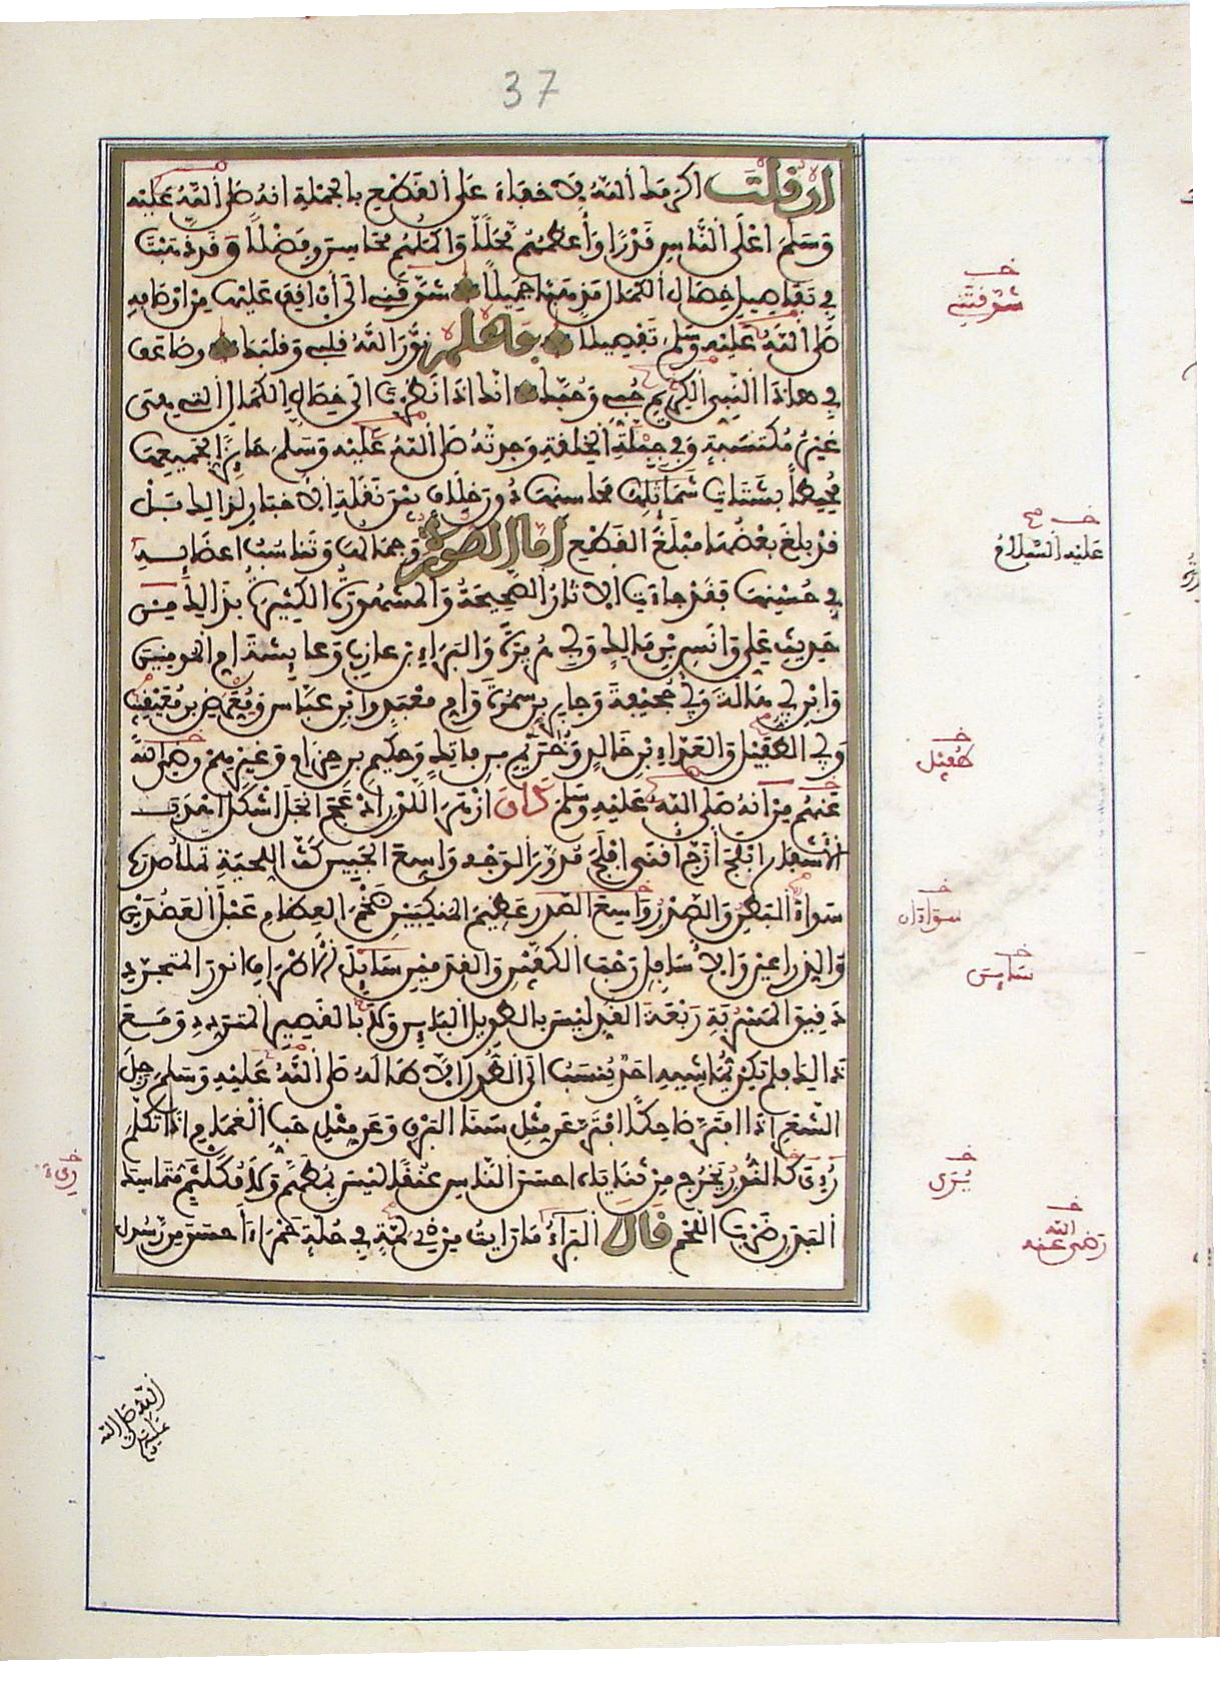 37
ان قلت اكرمك الله لا خفاء على القطع بالجملة انه صلى الله عليه
وسلم اعلى الناس قدرا وأعظمهم محلا واكملهم محاسن وفضلا وقد ذهبت
في تفاصيل خصال الكمال مذهبا جميلا شوقني الى أن اقف عليها من اوصافه
صلى الله عليه وسلم تفصيلا فاعلم نور الله قلبي وقلبك وضاعف
في هذا النبي الكريم حبي وحبك انك اذا نظرت الى خصال الكمال التي هي
غير مكتسبة وفي جبلة الخلقة وجدته صلى الله عليه وسلم حائزا لجميعها
محيطا بشتات محاسنها دون خلاف بين نقلة الاخبار لذالك بل
قد بلغ بعضها مبلغ القطع اما الصورة وجمالها وتناسب اعضائه
في حسنها فقد جاءت الاثار الصحيحة والمشهورة الكثيرة بذالك من
حديث علي وانس بن مالك وابي هريرة والبراء بن عازب وعائشة ام المومنين
وابن ابي هالة وابي جحيفة وجابر بن سمرة وام معبد وابن عباس ومعرض بن معيقيب
وابي الطفيل والعداء بن خالد وخريم بن فاتك وحكيم بن حزام وغيرهم رضي الله
عنهم من انه صلى الله عليه وسلم كان ازهر اللون ادعج انجل اشكل اهدب
الأشفار ابلج أزج أقنى افلج مدور الوجه واسع الجبين كث اللحية تملأ صدره
سواء البطن والصدر واسع الصدر عظيم المنكبين ضخم العظام عبل العضدين
والذراعين والاسافل رحب الكفين والقدمين سائل الاطراف انور المتجرد
دقيق المسربة ربعة القد ليس بالطويل البائن ولا بالقصير المتردد ومع
ذالك فلم يكن يماشيه احد ينسب الى الطول الا طاله صلى الله عليه وسلم رجل
الشعر اذا افتر ضاحكا افتر عن مثل سنا البرق وعن مثل حب الغمام اذا تكلم
رءي كالنور يخرج من ثناياه احسن الناس عنقا ليس بمطهم ولا مكلثم متماسك
البدن ضرب اللحم قال البراء ما رايت من ذي لمة في حلة حمراء احسن من رسول
خ
شوقتني
خ
عليه السلام
خ
طفيل
خ
سواءان
خ
سائن
خ
يرى
خ
رضي الله عنه
خ
رءي
الله صلى الله
عليه